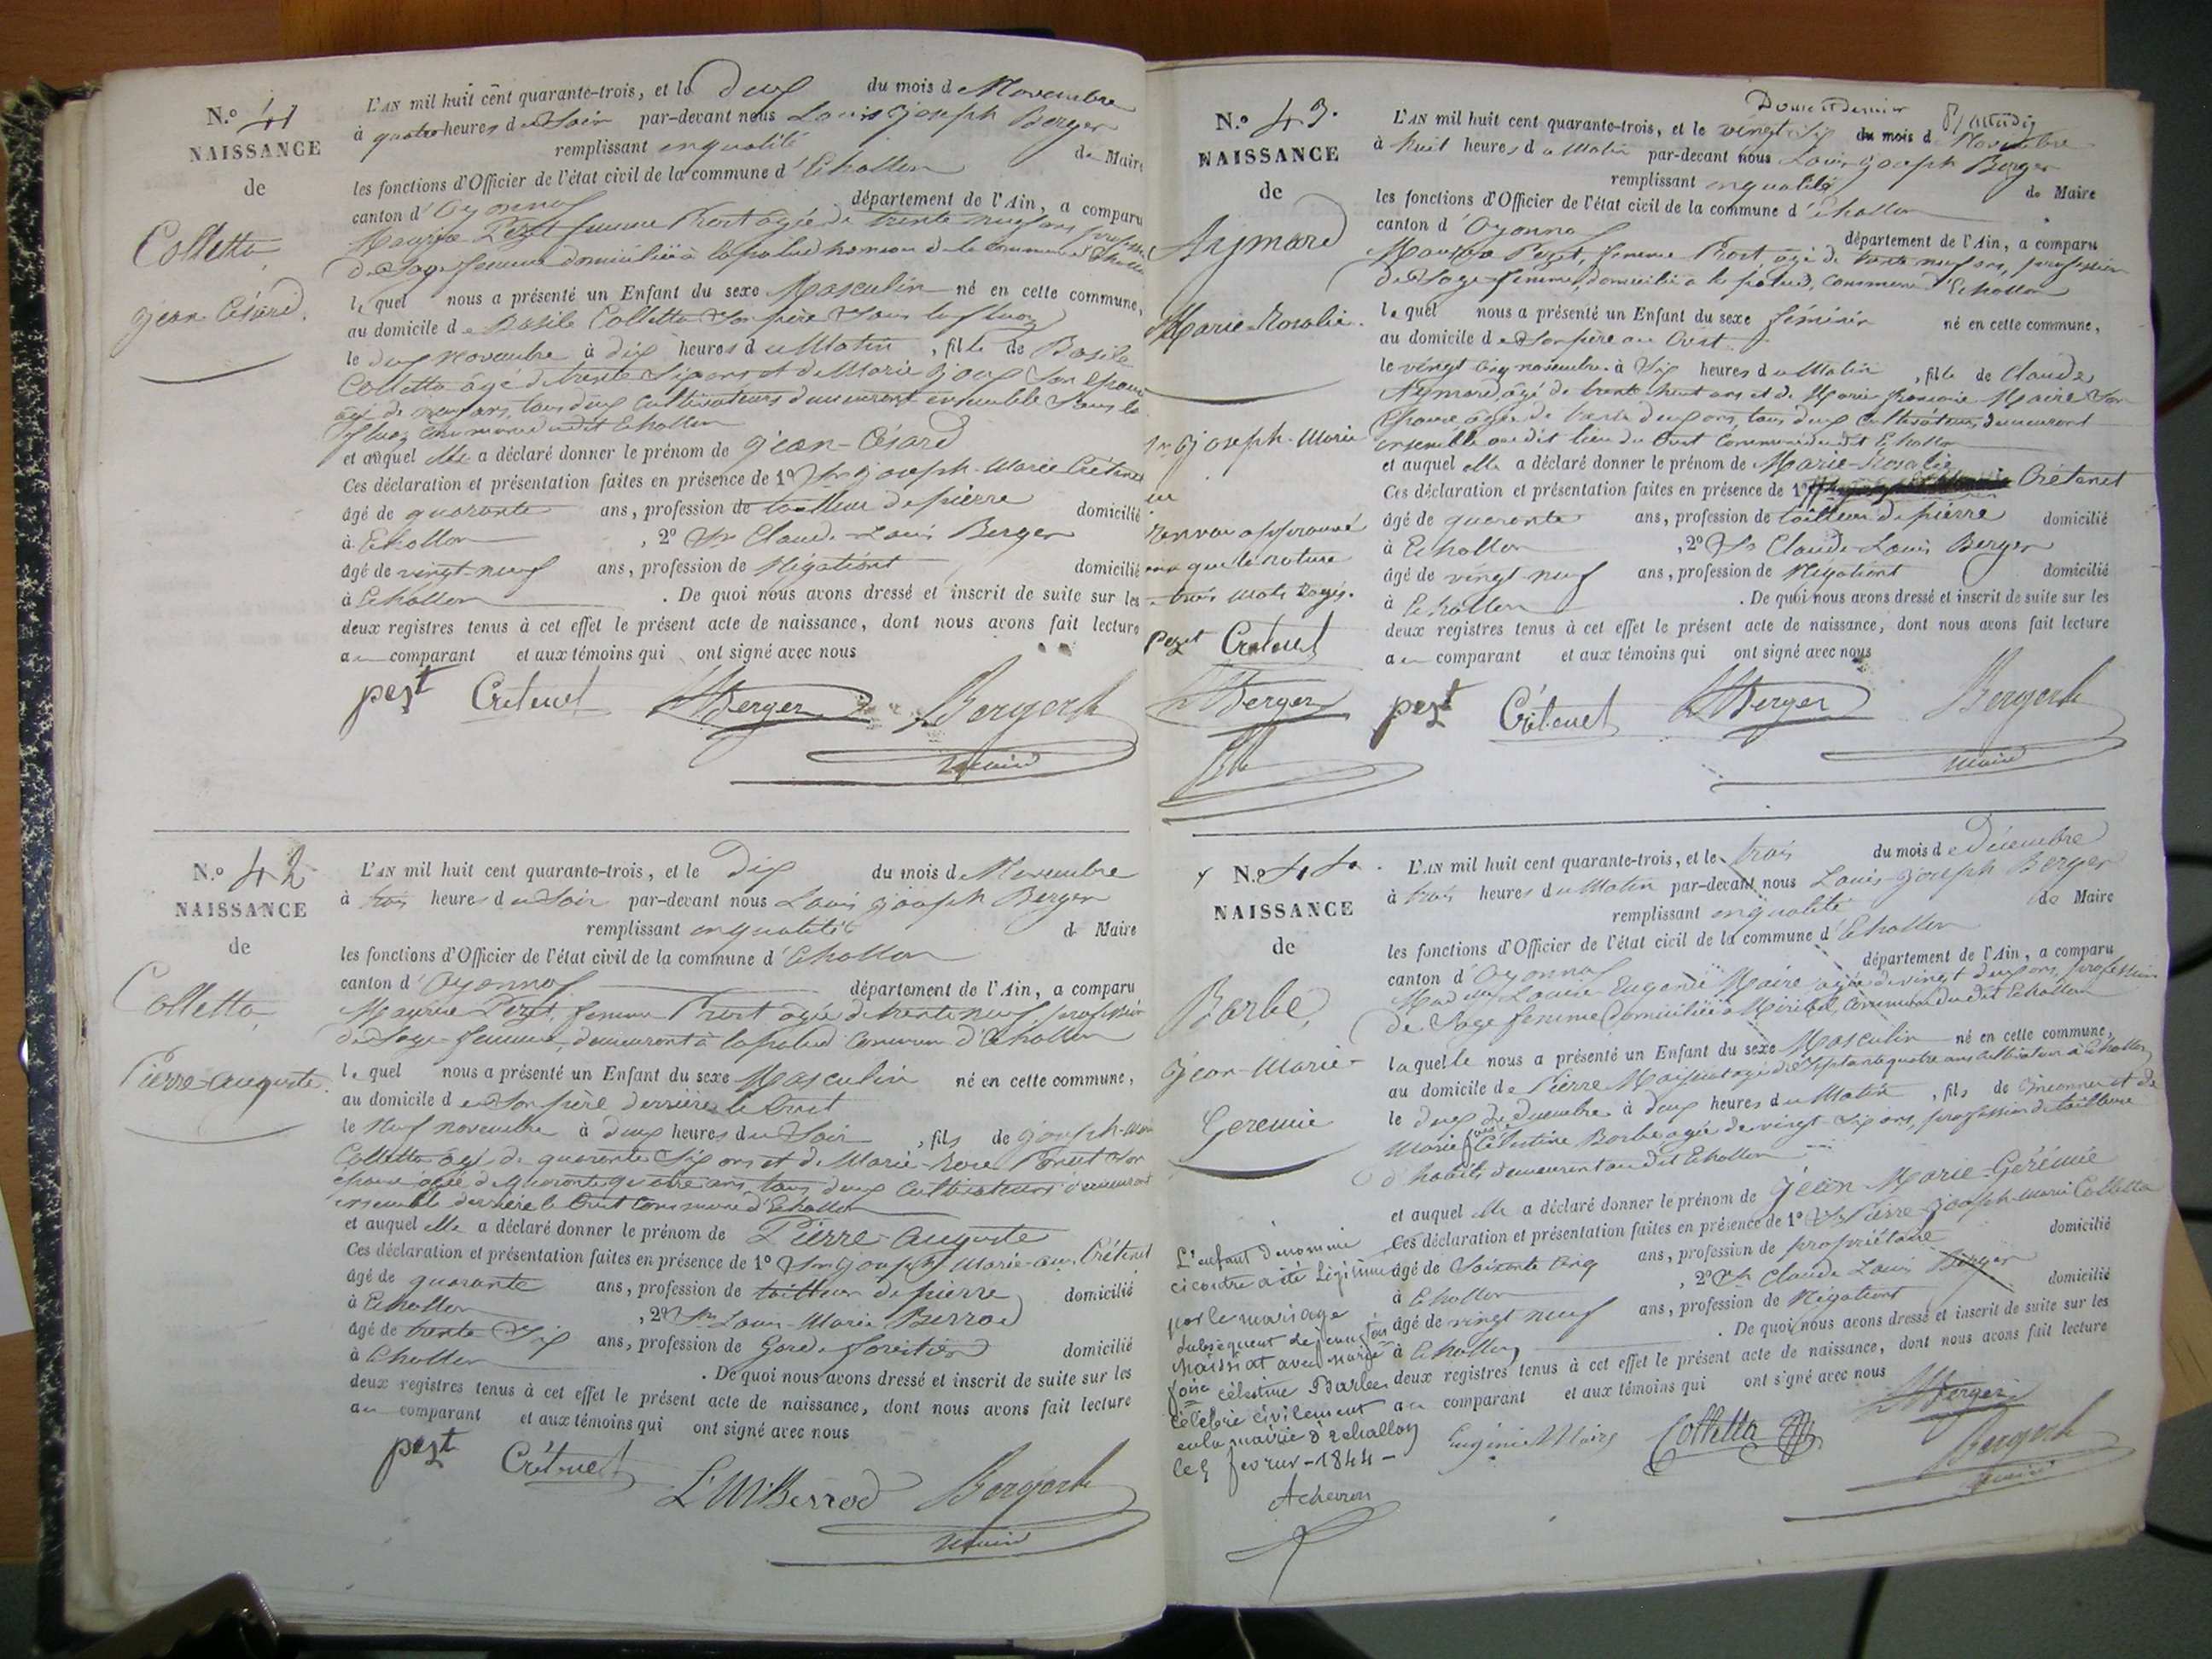 N.o 41
NAISSANCE
de
Colletta
Jean-Césard.
L'AN mil huit cent quarante-trois, et le deux du mois de Novembre
à quatre heures du Soir par-devant nous Louis Joseph Berger
remplissant en qualité de Maire
les fonctions d'Officier de l'état civil de la commune d'Echallon
canton d'Oyonnax département de l'Ain, a comparu
Pezet femme Prost âgée de trente neuf ans profession
de Sage femme domiciliée à lapalud hameau de la commune d'Echallon
lequel nous a présenté un Enfant du sexe Masculin né en cette commune,
au domicile de Basile Colletta Son père Sous
le deux novembre à dix heures du Matin, fils de Basile
Colletta âgé de trente Six ans et de Marie Joux Son Epouse
âgé de ans, tous deux Cultivateurs demeurant ensemble Sous le
commune dudit Echallon
et auquel elle a déclaré donner le prénom de Jean-Césard
Ces déclaration et présentation faites en présence de 1o Sr Joseph-Marie Crétenet
âgé de quarante ans, profession de tailleur de pierre domicilié
à Echallon, 2o Sr Claude-Louis Berger
âgé de vingt-neuf ans, profession de Négotiant domicilié
à Echallon. De quoi nous avons dressé et inscrit de suite sur les
deux registres tenus à cet effet le présent acte de naissance, dont nous avons fait lecture
au comparant et aux témoins qui ont signé avec nous
pezt Crétenet Berger Berger
maire
N.o 42
NAISSANCE
de
Colletta
Pierre-auguste.
L'AN mil huit cent quarante-trois, et le Dix du mois de Novembre
à trois heures du Soir par-devant nous Louis Joseph Berger
remplissant en qualité de Maire
les fonctions d'Officier de l'état civil de la commune d'Echallon
canton d'Oyonnax département de l'Ain, a comparu
Pezet, femme Prost agée de trente neuf profession
de Sage-femme, demeurant à lapalud Commune d'Echallon
lequel nous a présenté un Enfant du sexe Masculin né en cette commune,
au domicile de Son père derrière le Crest
le Neuf novembre à deux heures du Soir, fils de Joseph-Marie
Colletta âgé de quarante Six ans et de Marie-Rose Poncet Son
épouse agée de quarante quatre ans, tous deux Cultivateurs demeurant
ensemble derrière le Crest Commune d'Echallon
et auquel elle a déclaré donner le prénom de Pierre-auguste
Ces déclaration et présentation faites en présence de 1o Sr Joseph Marie Crétenet
âgé de quarante ans, profession de tailleur de pierre domicilié
à Echallon, 2o Sr Louis-Marie Berrod
âgé de trente Six ans, profession de Garde forestier domicilié
à Echallon. De quoi nous avons dressé et inscrit de suite sur les
deux registres tenus à cet effet le présent acte de naissance, dont nous avons fait lecture
au comparant et aux témoins qui ont signé avec nous
pezt Crétenet L'M Berrod Berger
maire
N.o 43.
NAISSANCE
de
Aymard
Marie-Rosalie.
Sr Joseph-Marie
renvoi approuvé
ainsi que la rature
de trois mots rayés.
Pezet Crétenet
Berger
L'AN mil huit cent quarante-trois, et le vingt Six du mois de Novembre
à huit heures du Matin par-devant nous Louis Joseph Berger
remplissant en qualité de Maire
les fonctions d'Officier de l'état civil de la commune d'Echallon
canton d'Oyonnax département de l'Ain, a comparu
Pezet, femme Prost, agé de trente neuf ans, profession
de Sage-femme, domiciliée à la palud, Commune d'Echallon
lequel nous a présenté un Enfant du sexe féminin né en cette commune,
au domicile de Son père au Crest
le vingt cinq novembre à Six heures du Matin, fille de Claude
Aymard, âgé de trente huit ans et de Marie françoise Maire Son
Epouse agée de trente deux ans, tous deux Cultivateurs, demeurant
ensemble audit lieu du Crest Commune dudit Echallon
et auquel elle a déclaré donner le prénom de Marie-Rosalie
Ces déclaration et présentation faites en présence de 1o Crétenet
âgé de quarante ans, profession de tailleur de pierre domicilié
à Echallon, 2o Sr Claude-Louis Berger
âgé de vingt-neuf ans, profession de Négotiant domicilié
à Echallon. De quoi nous avons dressé et inscrit de suite sur les
deux registres tenus à cet effet le présent acte de naissance, dont nous avons fait lecture
au comparant et aux témoins qui ont signé avec nous
pezt Crétenet Berger Berger
maire
N.o 44.
NAISSANCE
de
Barbe,
Jean-Marie-
Geremie
L'enfant dénommé
ci contre a été légitimé
par le mariage
subséquent de
Maissiat avec marie
foise célestine Barbe
célébré civilement
en la mairie d'Echallon
le 5 fevrier-1844-
Achevron
L'AN mil huit cent quarante-trois, et le trois du mois de Décembre
à trois heures du Matin par-devant nous Louis-Joseph Berger
remplissant en qualité de Maire
les fonctions d'Officier de l'état civil de la commune d'Echallon
canton d'Oyonnax département de l'Ain, a comparu
Louise Eugenie Maire agée de vingt deux ans, profession
de Sage femme domiciliée à Miribel, Commune dudit Echallon
laquelle nous a présenté un Enfant du sexe Masculin né en cette commune,
au domicile de Pierre Maissiat agé de Septante quatre ans Cultivateur à Echallon
le deux de decembre à deux heures du Matin, fils de inconnu et de
Marie foise Célestine Barbe agée de vingt-Six ans, profession de tailleuse
d'habits, demeurant audit Echallon
et auquel elle a déclaré donner le prénom de Jean-Marie-Gérémie
Ces déclaration et présentation faites en présence de 1o Sr Pierre Joseph-Marie Colletta
âgé de Soixante cinq ans, profession de propriétaire domicilié
à Echallon, 2o Sr Claude Louis Berger
âgé de vingt neuf ans, profession de Négotiant domicilié
à Echallon. De quoi nous avons dressé et inscrit de suite sur les
deux registres tenus à cet effet le présent acte de naissance, dont nous avons fait lecture
au comparant et aux témoins qui ont signé avec nous
Eugénie Maire Colletta Berger
Berger
maire